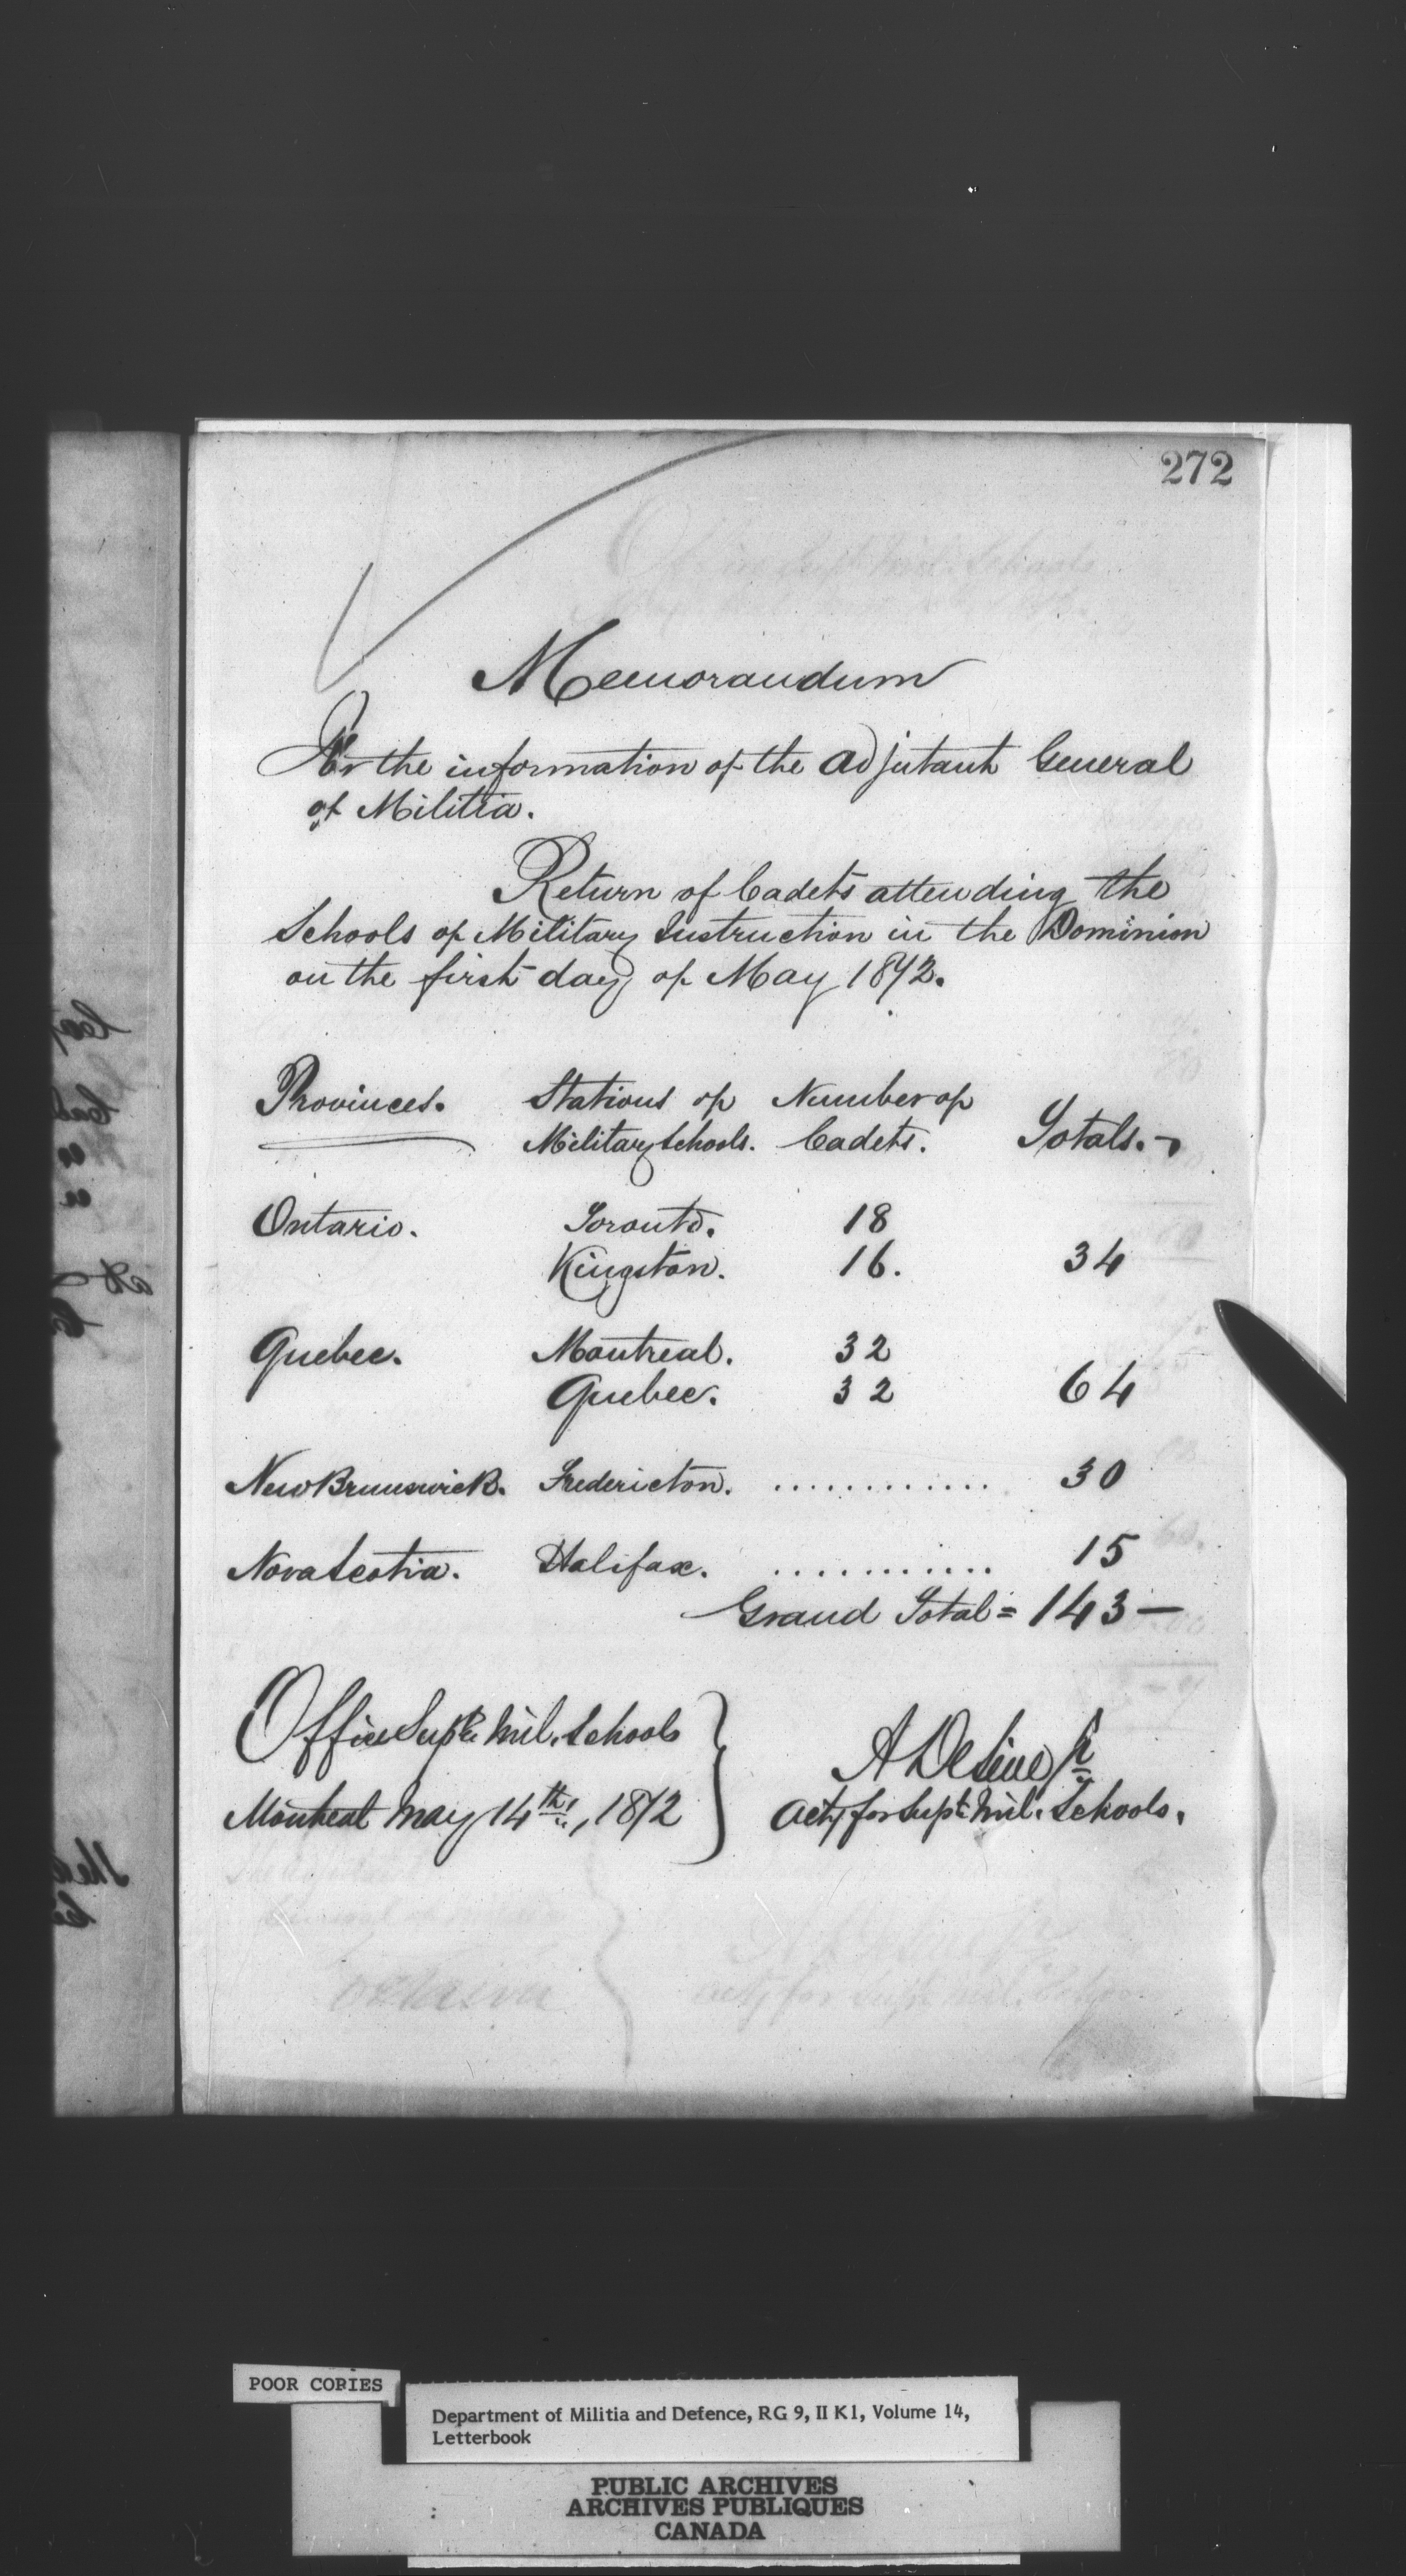 272
Memorandum
For the information of the Adjutant General
of Militia.
Return of Cadets attending the
Schools of Military Instruction in the Dominion
on the first day of May 1872.
Provinces. Stations of Number of
Military Schools. Cadets. Totals.
Ontario. Toronto. 18
Kingston. 16. 34
Quebec. Montreal. 32
Quebec. 32 64
New Brunswick. Fredericton. ............. 30
Nova Scotia. Halifax. ............ 15
Grand Total = 143 —
Office Supt. Mil. Schools
Montreal May 14th, 1872
actg for Supt. Mil. Schools.
POOR COPIES
Department of Militia and Defence, RG 9, II K1, Volume 14,
Letterbook
PUBLIC ARCHIVES
ARCHIVES PUBLIQUES
CANADA